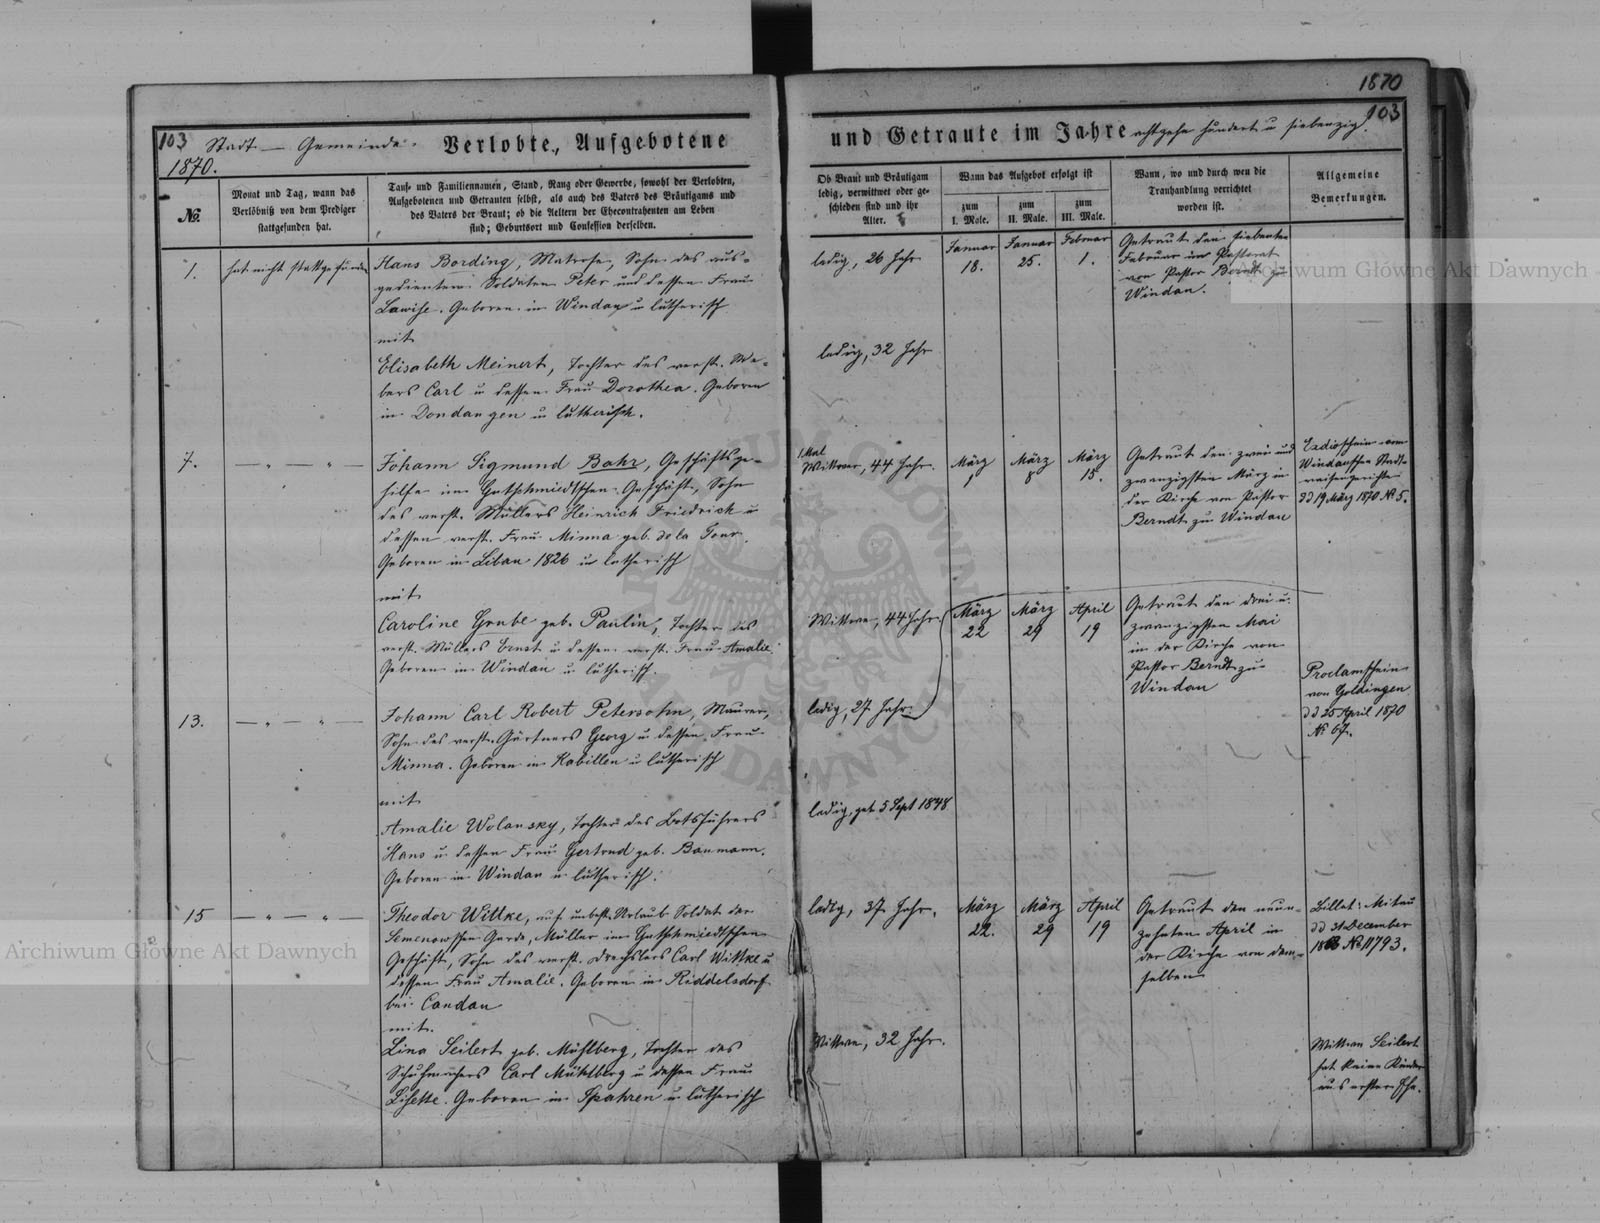 1870
103
103 Stadt — Gemeinde. Verlobte, Aufgebotene
und Getraute im Jahre achtzehn hundert u siebenzig.
1870.
№.
Monat und Tag, wann das
Verlöbniß von dem Prediger
stattgefunden hat.
Tauf- und Familiennamen, Stand, Rang oder Gewerbe, sowohl der Verlobten,
Aufgebotenen und Getrauten selbst, als auch des Vaters des Bräutigams und
des Vaters der Braut; ob die Aeltern der Ehecontrahenten am Leben
sind; Geburtsort und Confession derselben.
Ob Braut und Bräutigam
ledig, verwittwet oder ge-
schieden sind und ihr
Alter.
Wann das Aufgebot erfolgt ist
zum
I. Male.
zum
II. Male.
zum
III. Male.
Wann, wo und durch wen die
Trauhandlung verrichtet
worden ist.
Allgemeine
Bemerkungen.
1.
hat nicht stattgefunden
Hans Bording, Matrose, Sohn des aus-
gedienten Soldaten Peter und dessen Frau
Lawise. Geboren in Windau u lutherisch
mit
Elisabeth Meinert, Tochter des verst. We-
bers Carl u dessen Frau Dorothea. Geboren
in Dondangen u lutherisch.
ledig, 26 Jahr
ledig, 32 Jahr
Januar
18.
Januar
25.
Februar
1.
Getraut den siebenten
Februar im Pastorat
von Pastor Berndt zu
Windau.
7.
— " — " —
Johann Sigmund Bahr, Geschäftsge-
hilfe im Gutschmiedtschen Geschäft, Sohn
des verst. Müllers Heinrich Friedrich u
dessen verst. Frau Minna geb. de la Tour.
Geboren in Libau 1826 u lutherisch
mit
Caroline Grube geb. Paulin, Tochter des
verst. Müllers Ernst u dessen verst. Frau Amalie.
Geboren in Windau u lutherisch.
1 Mal
Wittwer, 44 Jahr.
Wittwe, 44 Jahr.
März
1
März
8
März
15.
Getraut den zwei und
zwanzigsten März in
der Kirche von Pastor
Berndt zu Windau
vom
Windauschen Stadt-
waisengerichte
dd 19 März 1870 № 5.
13.
— " — " —
Johann Carl Robert Petersohn, Maurer,
Sohn des verst. Gärtners Georg u dessen Frau
Minna. Geboren in Kabillen u lutherisch
mit
Amalie Wolansky, Tochter des Botsführers
Hans u dessen Frau Gertrud geb. Baumann.
Geboren in Windau u lutherisch.
ledig, 27 Jahr
ledig, geb 5 Sept 1848
März
22
März
29
April
19
Getraut den drei u.
zwanzigsten Mai
in der Kirche von
Pastor Berndt zu
Windau
Proclamschein
von Goldingen
dd 25 April 1870
№ 67.
15
— " — " —
Theodor Wittke, auf unbest. Urlaub Soldat der
Semenowschen Garde, Müller im Gutschmiedtschen
Geschäft, Sohn des verst. Drechslers Carl Wittke u
dessen Frau Amalie. Geboren in Riddelsdorf
bei Candau
mit
Lina Seilert geb. Mühlberg, Tochter des
Schuhmachers Carl Mühlberg u dessen Frau
Lisette. Geboren in Spahren u lutherisch
ledig, 37 Jahr.
Wittwe, 32 Jahr.
März
22.
März
29
April
19
Getraut den neun-
zehnten April in
der Kirche von dem-
selben
Billet: Mitau
dd 31 December
№ 11793.
Wittwe Seilert
hat keine Kinder
aus erster Ehe.
Archiwum Główne Akt Dawnych
Archiwum Główne Akt Dawnych
ARCHIWUM GŁÓWNE AKT DAWNYCH